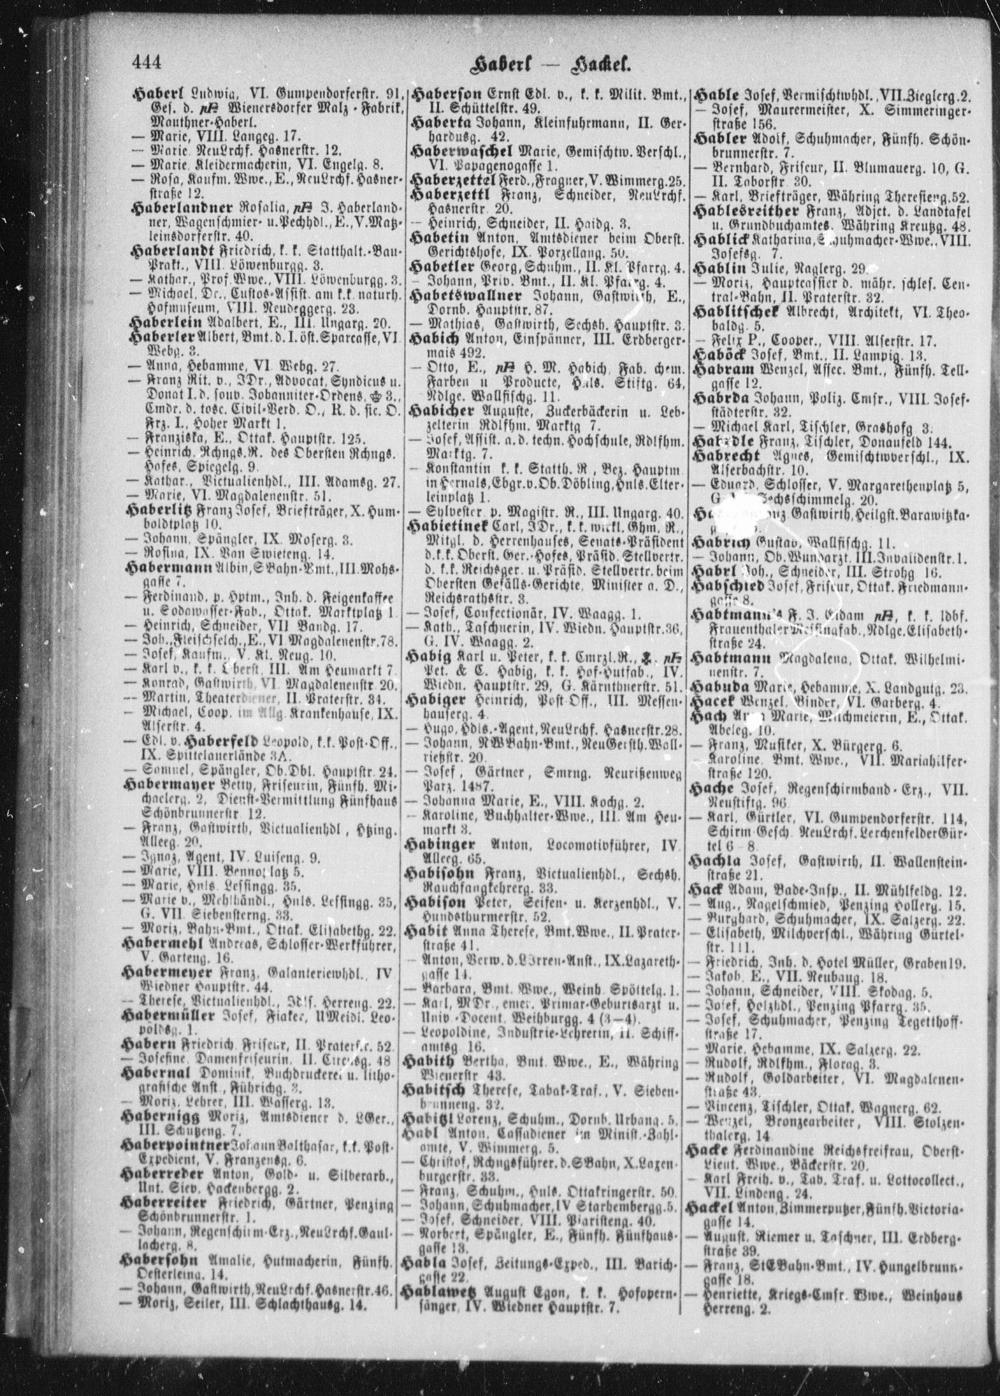 444
Haberl — Hackel.
Haberl Ludwig, VI. Gumpendorferstr. 91,
Ges. d. Wienersdorfer Malz-Fabrik,
Mauthner-Haberl.
— Marie, VIII. Langeg. 17.
— Marie, NeuLrchf. Hasnerstr. 12.
— Marie, Kleidermacherin, VI. Engelg. 8.
— Rosa, Kaufm. Wwe., E., NeuLrchf. Hasner-
straße 12.
Haberlandner Rosalia, J. Haberland-
ner, Wagenschmier- u. Pechhdl., E., V. Matz-
leinsdorferstr. 40.
Haberlandt Friedrich, k. k. Statthalt.-Bau-
Prakt., VIII. Löwenburgg. 3.
— Kathar., Prof. Wwe., VIII. Löwenburgg. 3.
— Michael, Dr., Custos-Assist. am k.k. naturh.
Hofmuseum, VIII. Neudeggerg. 23.
Haberlein Adalbert, E., III. Ungarg. 20.
Haberler Albert, Bmt. d. I. öst. Sparcasse, VI.
Webg. 3.
— Anna, Hebamme, VI. Webg. 27.
— Franz Rit. v., JDr., Advocat, Syndicus u.
Donat I. d. souv. Johanniter-Ordens, 3.,
Cmdr. d. tosc. Civil-Verd. O., R. d. sic. O.
Frz. I., Hoher Markt 1.
— Franziska, E., Ottak. Hauptstr. 125.
— Heinrich, Rchngs.R. des Obersten Rchngs.
Hofes, Spiegelg. 9.
— Kathar., Victualienhdl., III. Adamsg. 27.
— Marie, VI. Magdalenenstr. 51.
Haberlitz Franz Josef, Briefträger, X. Hum-
boldtplatz 10.
— Johann, Spängler, IX. Moserg. 3.
— Rosina, IX. Van Swieteng. 14.
Habermann Albin, SBahn-Bmt., III. Mohs-
gasse 7.
— Ferdinand, p. Hptm., Inh. d. Feigenkaffee
u. Sodawasser-Fab., Ottak. Marktplatz 1.
— Heinrich, Schneider, VII. Bandg. 17.
— Joh., Fleischselch., E., VI. Magdalenenstr. 78.
— Josef, Kaufm., V. Kl. Neug. 10.
— Karl v., k. k. Oberst, III. Am Heumarkt 7.
— Konrad, Gastwirth, VI. Magdalenenstr. 20.
— Martin, Theaterdiener, II. Praterstr. 34.
— Michael, Coop. im Allg. Krankenhause, IX.
Alserstr. 4.
— Edl. v. Haberfeld Leopold, k.k. Post-Off.,
IX. Spittelauerlände 3A.
— Samuel, Spängler, Ob.Dbl. Hauptstr. 24.
Habermayer Betty, Friseurin, Fünfh. Mi-
chaelerg. 2, Dienst-Vermittlung Fünfhaus
Schönbrunnerstr. 12.
— Franz, Gastwirth, Victualienhdl., Htzing.
Alleeg. 20.
— Ignaz, Agent, IV. Luiseng. 9.
— Marie, VIII. Bennoplatz 5.
— Marie, Hnls. Lessingg. 35.
— Marie v., Mehlhändl., Hnls. Lessingg. 35,
G. VII. Siebensterng. 33.
— Moriz, Bahn-Bmt., Ottak. Elisabethg. 22.
Habermehl Andreas, Schlosser-Werkführer,
V. Garteng. 16.
Habermeyer Franz, Galanteriewhdl., IV.
Wiedner Hauptstr. 44.
— Therese, Victualienhdl., Herreng. 22.
Habermüller Josef, Fiaker, UMeidl. Leo-
poldsg. 1.
Habern Friedrich, Friseur, II. Praterstr. 52.
— Josefine, Damenfriseurin, II. Circusg. 48.
Habernal Dominik, Buchdruckerei u. litho-
grafische Anst., Führichg. 3.
— Moriz, Lehrer, III. Wasserg. 13.
Habernigg Moriz, Amtsdiener d. LGer.,
III. Schützeng. 7.
Haberpointner Johann Balthasar, k.k. Post-
Expedient, V. Franzensg. 6.
Haberreder Anton, Gold- u. Silberarb.,
Unt. Siev. Hackenbergg. 2.
Haberreiter Friedrich, Gärtner, Penzing
Schönbrunnerstr. 1.
— Johann, Regenschirm-Erz., NeuLrchf. Gaul-
lacherg. 8.
Habersohn Amalie, Hutmacherin, Fünfh.
Oesterleing. 14.
— Johann, Gastwirth, NeuLrchf. Hasnerstr. 46.
— Moriz, Seiler, III. Schlachthausg. 14.
Haberson Ernst Edl. v., k. k. Milit. Bmt.,
II. Schüttelstr. 49.
Haberta Johann, Kleinfuhrmann, II. Ger-
hardusg. 42.
Haberwaschel Marie, Gemischtw. Verschl.,
VI. Papagenogasse 1.
Haberzettel Ferd., Fragner, V. Wimmerg. 25.
Haberzettl Franz, Schneider, NeuLrchf.
Hasnerstr. 20.
— Heinrich, Schneider, II. Haidg. 3.
Habetin Anton, Amtsdiener beim Oberst.
Gerichtshofe, IX. Porzellang. 50.
Habetler Georg, Schuhm., II. Kl. Pfarrg. 4.
— Johann, Priv. Bmt., II. Kl. Pfarrg. 4.
Habetswallner Johann, Gastwirth, E.,
Dornb. Hauptstr. 87.
— Mathias, Gastwirth, Sechsh. Hauptstr. 3.
Habich Anton, Einspänner, III. Erdberger-
mais 492.
— Otto, E., H. M. Habich, Fab. chem.
Farben u. Producte, Hnls. Stiftg. 64,
Ndlge. Wallfischg. 11.
Habicher Auguste, Zuckerbäckerin u. Leb-
zelterin Rdlfhm. Marktg. 7.
— Josef, Assist. a. d. techn. Hochschule, Rdlfhm.
Marktg. 7.
— Konstantin, k. k. Statth. R., Bez. Hauptm.
in Hernals, Ebgr. v. Ob. Döbling, Hnls. Elter-
leinplatz 1.
— Sylvester, p. Magistr. R., III. Ungarg. 40.
Habietinek Carl, JDr., k. k. wirkl. Ghm. R.,
Mitgl. d. Herrenhauses, Senats-Präsident
d. k.k. Oberst. Ger.-Hofes, Präsid. Stellvertr.
d. k. k. Reichsger. u. Präsid. Stellvertr. beim
Obersten Gefälls-Gerichte, Minister a. D.,
Reichsrathsstr. 3.
— Josef, Confectionär, IV. Waagg. 1.
— Kath., Taschnerin, IV. Wiedn. Hauptstr. 36,
G. IV. Waagg. 2.
Habig Karl u. Peter, k. k. Cmrzl.R.,
Pet. & C. Habig, k. k. Hof-Hutfab., IV.
Wiedn. Hauptstr. 29, G. Kärnthnerstr. 51.
Habiger Heinrich, Post-Off., III. Messen-
hauserg. 4.
— Hugo, Hdls.-Agent, NeuLrchf. Hasnerstr. 28.
— Johann, NWBahn-Bmt., NeuGersth. Wall-
rießstr. 20.
— Josef, Gärtner, Smrng. Neurißenweg
Parz. 1487.
— Johanna Marie, E., VIII. Kochg. 2.
— Karoline, Buchhalter-Wwe., III. Am Heu-
markt 3.
Habinger Anton, Locomotivführer, IV.
Alleeg. 65.
Habisohn Franz, Victualienhdl., Sechsh.
Rauchfangkehrerg. 33.
Habison Peter, Seifen- u. Kerzenhdl., V.
Hundsthurmerstr. 52.
Habit Anna Therese, Bmt. Wwe., II. Prater-
straße 41.
— Anton, Verw. d. L.Irren-Anst., IX. Lazareth-
gasse 14.
— Barbara, Bmt. Wwe., Weinh. Spöttelg. 1.
— Karl, MDr., emer. Primar-Geburtsarzt u.
Univ.-Docent, Weihburgg. 4 (3—4).
— Leopoldine, Industrie-Lehrerin, II. Schiff-
amtsg. 16.
Habith Bertha, Bmt. Wwe., E., Währing
Wienerstr. 43.
Habitsch Therese, Tabak-Traf., V. Sieben-
brunneng. 32.
Habitzl Lorenz, Schuhm., Dornb. Urbang. 5.
Habl Anton, Cassadiener im Minist.-Zahl-
amte, V. Wimmerg. 5.
— Christof, Rchngsführer. d. SBahn, X. Laxen-
burgerstr. 33.
— Franz, Schuhm., Hnls. Ottakringerstr. 50.
— Johann, Schuhmacher, IV. Starhembergg. 5.
— Josef, Schneider, VIII. Piaristeng. 40.
— Norbert, Spängler, E., Fünfh. Fünfhaus-
gasse 13.
Habla Josef, Zeitungs-Exped., III. Barich-
gasse 22.
Hablawetz August Egon, k. k. Hofopern-
sänger, IV. Wiedner Hauptstr. 7.
Hable Josef, Vermischtwhdl., VII. Zieglerg. 2.
— Josef, Maurermeister, X. Simmeringer-
straße 156.
Habler Adolf, Schuhmacher, Fünfh. Schön-
brunnerstr. 7.
— Bernhard, Friseur, II. Blumauerg. 10, G.
II. Taborstr. 30.
— Karl, Briefträger, Währing Theresieng. 52.
Hablesreither Franz, Adjct. d. Landtafel
u. Grundbuchamtes, Währing Kreuzg. 48.
Hablick Katharina, Schuhmacher-Wwe., VIII.
Josefsg. 7.
Hablin Julie, Naglerg. 29.
— Moriz, Hauptcassier d. mähr. schles. Cen-
tral-Bahn, II. Praterstr. 32.
Hablitschek Albrecht, Architekt, VI. Theo-
baldg. 5.
— Felix P., Cooper., VIII. Alserstr. 17.
Haböck Josef, Bmt., II. Lampig. 13.
Habram Wenzel, Assec. Bmt., Fünfh. Tell-
gasse 12.
Habrda Johann, Poliz. Cmsr., VIII. Josef-
städterstr. 32.
— Michael Karl, Tischler, Grashofg. 3.
Franz, Tischler, Donaufeld 144.
Habrecht Agnes, Gemischtwverschl., IX.
Alserbachstr. 10.
— Eduard, Schlosser, V. Margarethenplatz 5,
Sechsschimmelg. 20.
Gastwirth, Heilgst. Barawitzka-
Habrich Gustav, Wallfischg. 11.
— Johann, Ob. Wundarzt, III. Invalidenstr. 1.
Habrl Joh., Schneider, III. Strohg. 16.
Habschied Josef, Friseur, Ottak. Friedmann-
gasse 8.
Habtmann's F. J. Eidam, k. k. ldbf.
Frauenthaler Messingfab., Ndlge. Elisabeth-
straße 24.
Habtmann Magdalena, Ottak. Wilhelmi-
nenstr. 7.
Habuda Marie, Hebamme, X. Landgutg. 23.
Hacek Wenzel, Binder, VI. Garberg. 4.
Hach Marie, Milchmeierin, E., Ottak.
Abeleg. 10.
— Franz, Musiker, X. Bürgerg. 6.
— Karoline, Bmt. Wwe., VII. Mariahilfer-
straße 120.
Hache Josef, Regenschirmband-Erz., VII.
Neustiftg. 96.
— Karl, Gürtler, VI. Gumpendorferstr. 114,
Schirm-Gesch. NeuLrchf. LerchenfelderGür-
tel 6—8.
Hachla Josef, Gastwirth, II. Wallenstein-
straße 21.
Hack Adam, Bade-Insp., II. Mühlfeldg. 12.
— Aug., Nagelschmied, Penzing Hollerg. 15.
— Burghard, Schuhmacher, IX. Salzerg. 22.
— Elisabeth, Milchverschl., Währing Gürtel-
str. 111.
— Friedrich, Inh. d. Hotel Müller, Graben 19.
— Jakob, E., VII. Neubaug. 18.
— Johann, Schneider, VIII. Skodag. 5.
— Josef, Holzhdl., Penzing Pfarrg. 35.
— Josef, Schuhmacher, Penzing Tegetthoff-
straße 17.
— Marie, Hebamme, IX. Salzerg. 22.
— Rudolf, Rdlkhm., Florag. 3.
— Rudolf, Goldarbeiter, VI. Magdalenen-
straße 43.
— Vincenz, Tischler, Ottak. Wagnerg. 62.
— Wenzel, Bronzearbeiter, VIII. Stolzen-
thalerg. 14.
Hacke Ferdinandine Reichsfreifrau, Oberst-
Lieut. Wwe., Bäckerstr. 20.
— Karl Freih. v., Tab. Traf. u. Lottocollect.,
VII. Lindeng. 24.
Hackel Anton, Zimmerputzer, Fünfh. Victoria-
gasse 14.
— August, Riemer u. Taschner, III. Erdberg-
straße 39.
— Franz, StEBahn-Bmt., IV. Hungelbrunn-
gasse 18.
— Henriette, Kriegs-Cmsr. Wwe., Weinhaus
Herreng. 2.